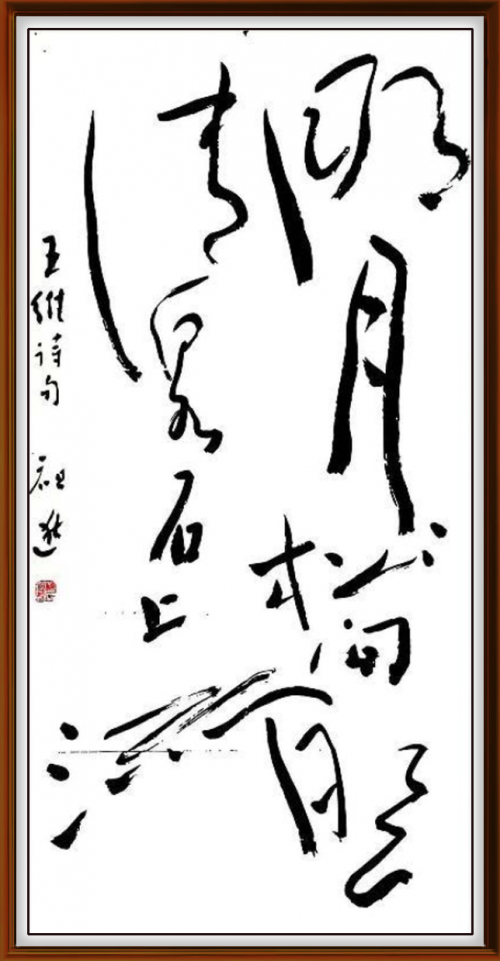 明月松间照
清泉石上流
王维诗句 祖